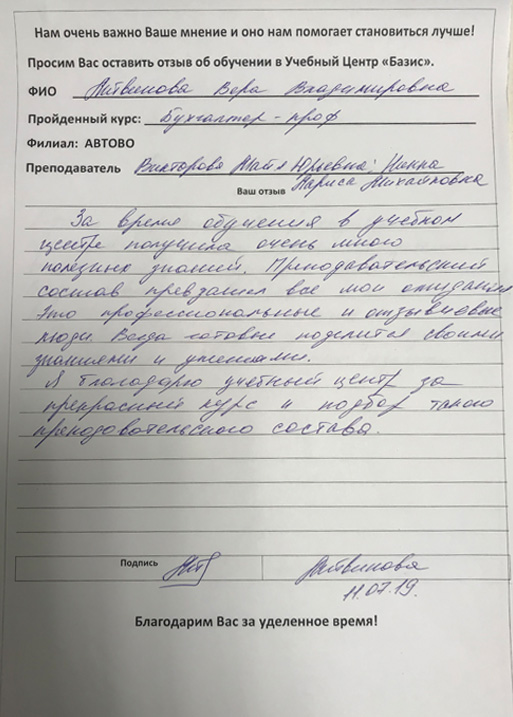 Нам очень важно Ваше мнение и оно нам помогает становиться лучше!
Просим Вас оставить отзыв об обучении в Учебный Центр «Базис».
ФИО Литвинова Вера Владимировна
Пройденный курс: Бухгалтер - проф
Филиал: АВТОВО
Преподаватель Викторова Майя Юрьевна
Лариса Михайловна
Ваш отзыв
За время обучения в учебном
центре получила очень много
полезных знаний. Преподавательский
состав превзашел все мои ожидания
Это профессиональные и отзывчивые
люди. Всегда готовые поделится своими
знаниями и умениями.
Я благодарю учебный центр за
прекрасный курс и подбор такого
преподовательского состава.
Подпись
Литвинова
11.07.19.
Благодарим Вас за уделенное время!